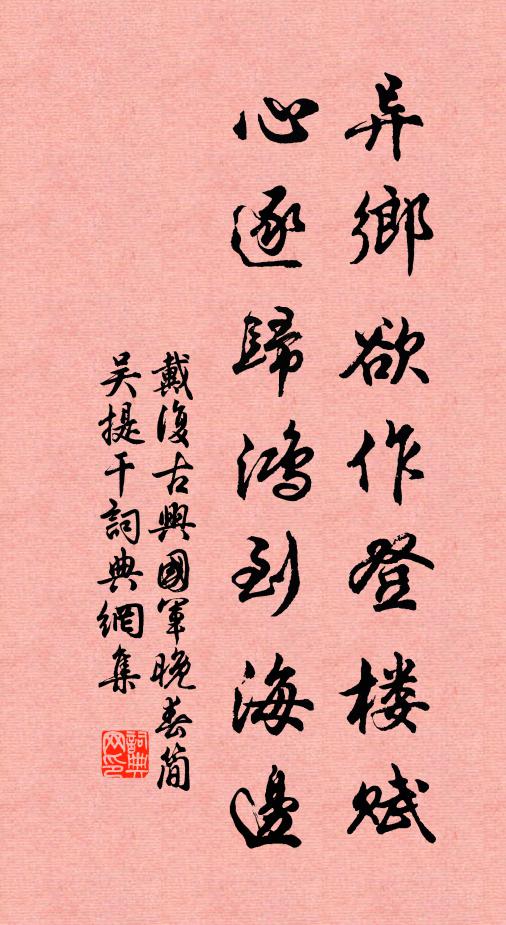 异鄉欲作登楼赋
心逐歸鴻到海邊
戴復古興國軍晚春簡
吴提干詞典網集
詞典網印